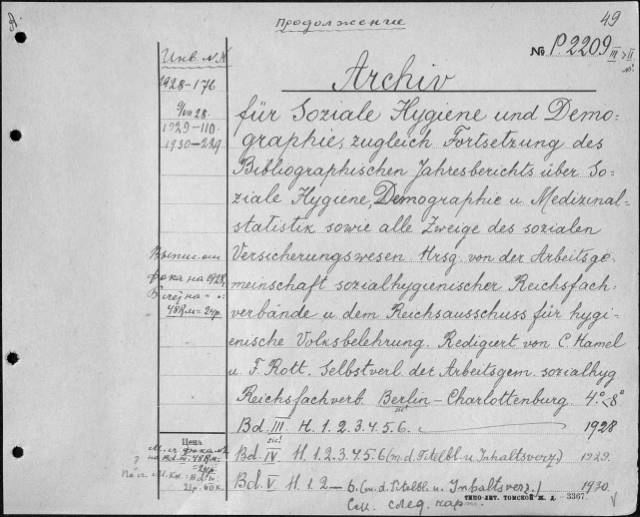 Продолжение
49
№ P.2209
Инв. №№
1928-176
1929-110.
1930-229
Archiv
für Soziale Hygiene und Demo-
graphie, zugleich Fortsetzung des
Bibliographischen Jahresberichts über So-
ziale Hygiene, Demographie u Medizinal-
statistik sowie alle Zweige des sozialen
Versicherungswesen. Hrsg. von der Arbeitsge-
meinschaft sozialhygienischer Reichsfach-
verbände u dem Reichsausschuss für hygi-
enische Volksbelehrung. Redigiert von C. Hamel
u F. Rott. Selbstverl. der Arbeitsgem. sozialhyg
Reichsfachverb. Berlin-Charlottenburg. 4º<8º
Bd. III H. 1.2.3.4.5.6. 1928
sic!
Bd. IV H. 1.2.3.4.5.6 (m.d. Titelbl. u Inhaltsverz) 1929.
Bd. V H. 1.2-6. (m.d. Titelbl. u. Inhaltsverz.) 1930.
См. след. карт.
на 1928,
48 Rm=
Цена
ТИПО-ЛИТ. ТОМСКОЙ Ж. Д. - 3367.